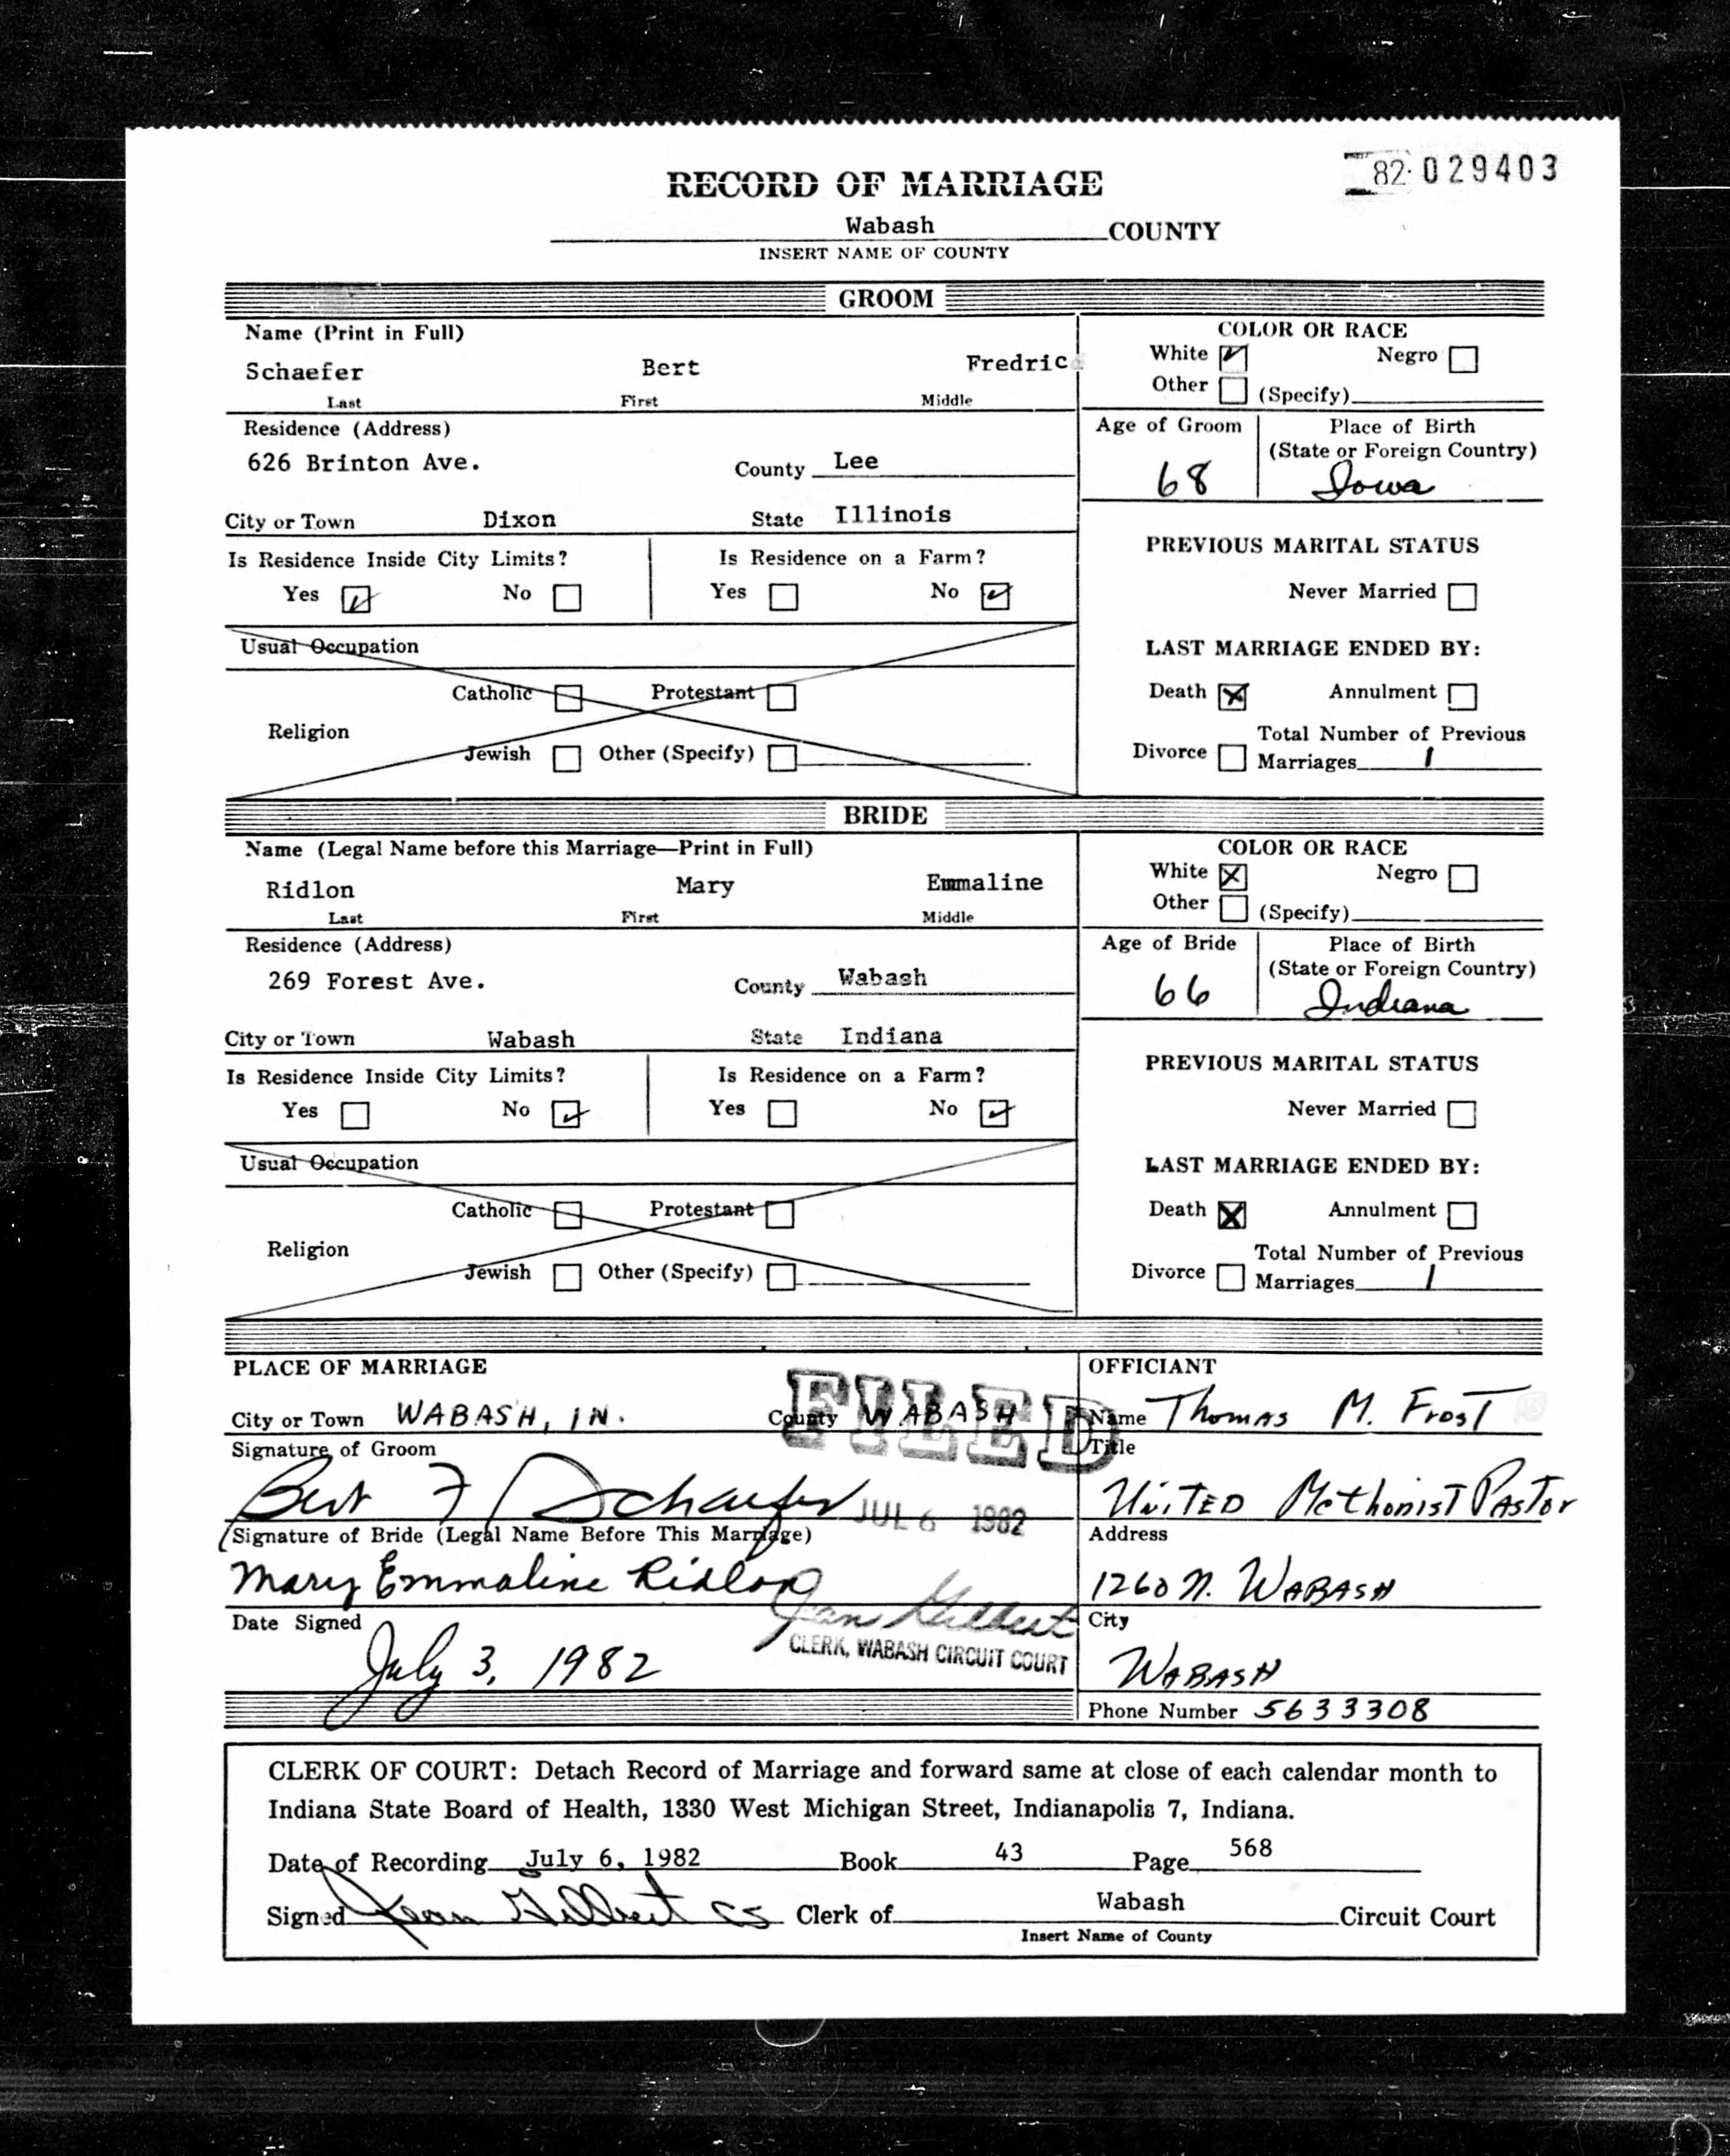 82- 029403
RECORD OF MARRIAGE
Wabash COUNTY
INSERT NAME OF COUNTY
GROOM
Name (Print in Full)
Schaefer Bert Fredric
Last First Middle
COLOR OR RACE
White Negro
Other (Specify)
Residence (Address)
626 Brinton Ave. County Lee
Age of Groom Place of Birth
(State or Foreign Country)
68 Iowa
City or Town Dixon State Illinois
Is Residence Inside City Limits? Is Residence on a Farm?
Yes No Yes No
PREVIOUS MARITAL STATUS
Never Married
Usual Occupation
LAST MARRIAGE ENDED BY:
Catholic Protestant
Religion
Jewish Other (Specify)
Death Annulment
Total Number of Previous
Divorce Marriages 1
BRIDE
Name (Legal Name before this Marriage—Print in Full)
Ridlon Mary Emmaline
Last First Middle
COLOR OR RACE
White Negro
Other (Specify)
Residence (Address)
269 Forest Ave. County Wabash
Age of Bride Place of Birth
(State or Foreign Country)
66 Indiana
City or Town Wabash State Indiana
Is Residence Inside City Limits? Is Residence on a Farm?
Yes No Yes No
PREVIOUS MARITAL STATUS
Never Married
Usual Occupation
LAST MARRIAGE ENDED BY:
Catholic Protestant
Religion
Jewish Other (Specify)
Death Annulment
Total Number of Previous
Divorce Marriages 1
PLACE OF MARRIAGE
City or Town WABASH, IN. County WABASH
FILED
Signature of Groom
Bert F Schaefer
JUL 6 1982
Signature of Bride (Legal Name Before This Marriage)
Mary Emmaline Ridlon
Jean Gilbert
CLERK, WABASH CIRCUIT COURT
Date Signed
July 3, 1982
OFFICIANT
Name Thomas M. Frost
Title
UNITED MethodIST PASTor
Address
1260 N. WABASH
City
WABASH
Phone Number 5633308
CLERK OF COURT: Detach Record of Marriage and forward same at close of each calendar month to
Indiana State Board of Health, 1330 West Michigan Street, Indianapolis 7, Indiana.
Date of Recording July 6, 1982 Book 43 Page 568
Signed Jean Gilbert cs Clerk of Wabash Circuit Court
Insert Name of County